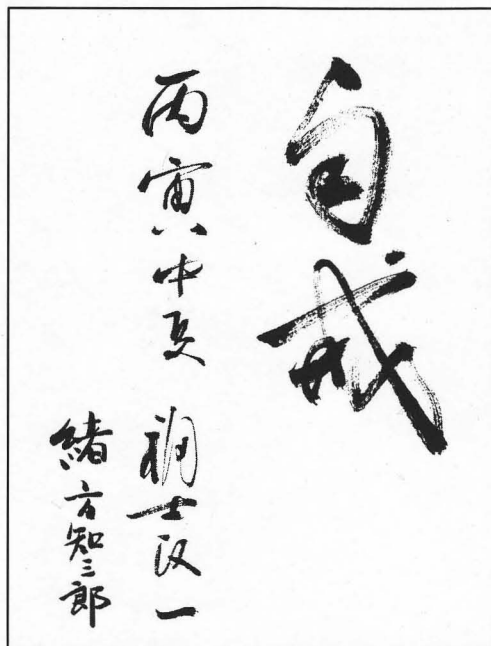 自戒
丙寅中夏 福士政一
緒方知三郎